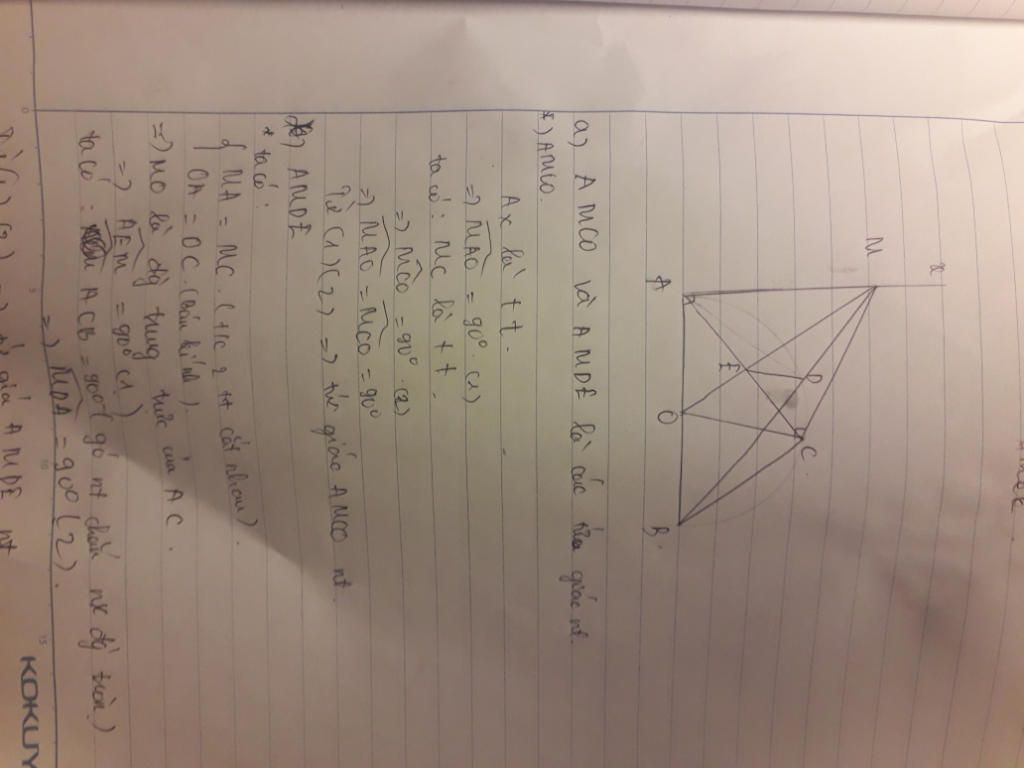 x
M
A
E
D
C
O
B
a) AMCO và AMDE là các tứ giác nt
*) AMCO.
Ax là tt.
=) MAO = 90° (1)
ta có: MC là tt.
=) MCO = 90°. (2)
=) MAO = MCO = 90°
Từ (1)(2) =) tứ giác AMCO nt.
*) AMDE
* ta có:
MA = MC. (t/c 2 tt cắt nhau).
OA = OC. (bán kính).
=) MO là đg trung trực của AC.
=) AEM = 90° (1)
ta có: ACB = 90° (góc nt chắn nửa đg tròn.)
=) MDA = 90° (2).
Từ (1) (2) =) tứ giác AMDE nt
0
5
10
15
KOKUY